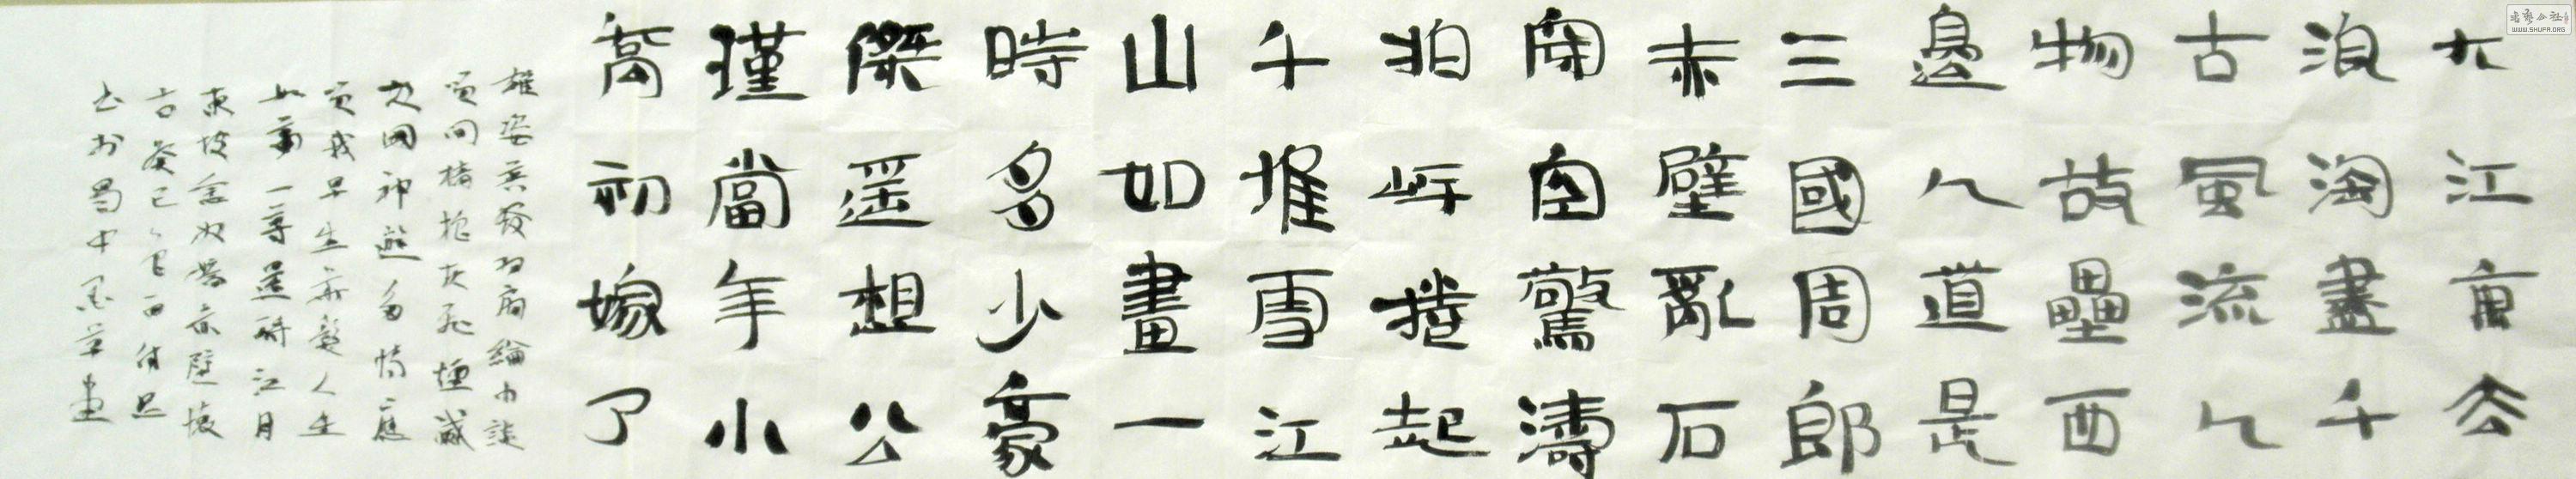 大江東去
浪淘盡千
古風流人
物故壘西
邊人道是
三國周郎
赤壁亂石
穿空驚濤
拍岸捲起
千堆雪江
山如畫一
時多少豪
傑遥想公
瑾當年小
喬初嫁了
雄姿英發羽扇綸巾談
笑間檣櫓灰飛煙滅
故國神遊多情應
笑我早生華髮人生
如夢一尊還酹江月
東坡念奴嬌赤壁懷
古癸巳
書於蜀中
WWW.SHUFA.ORG